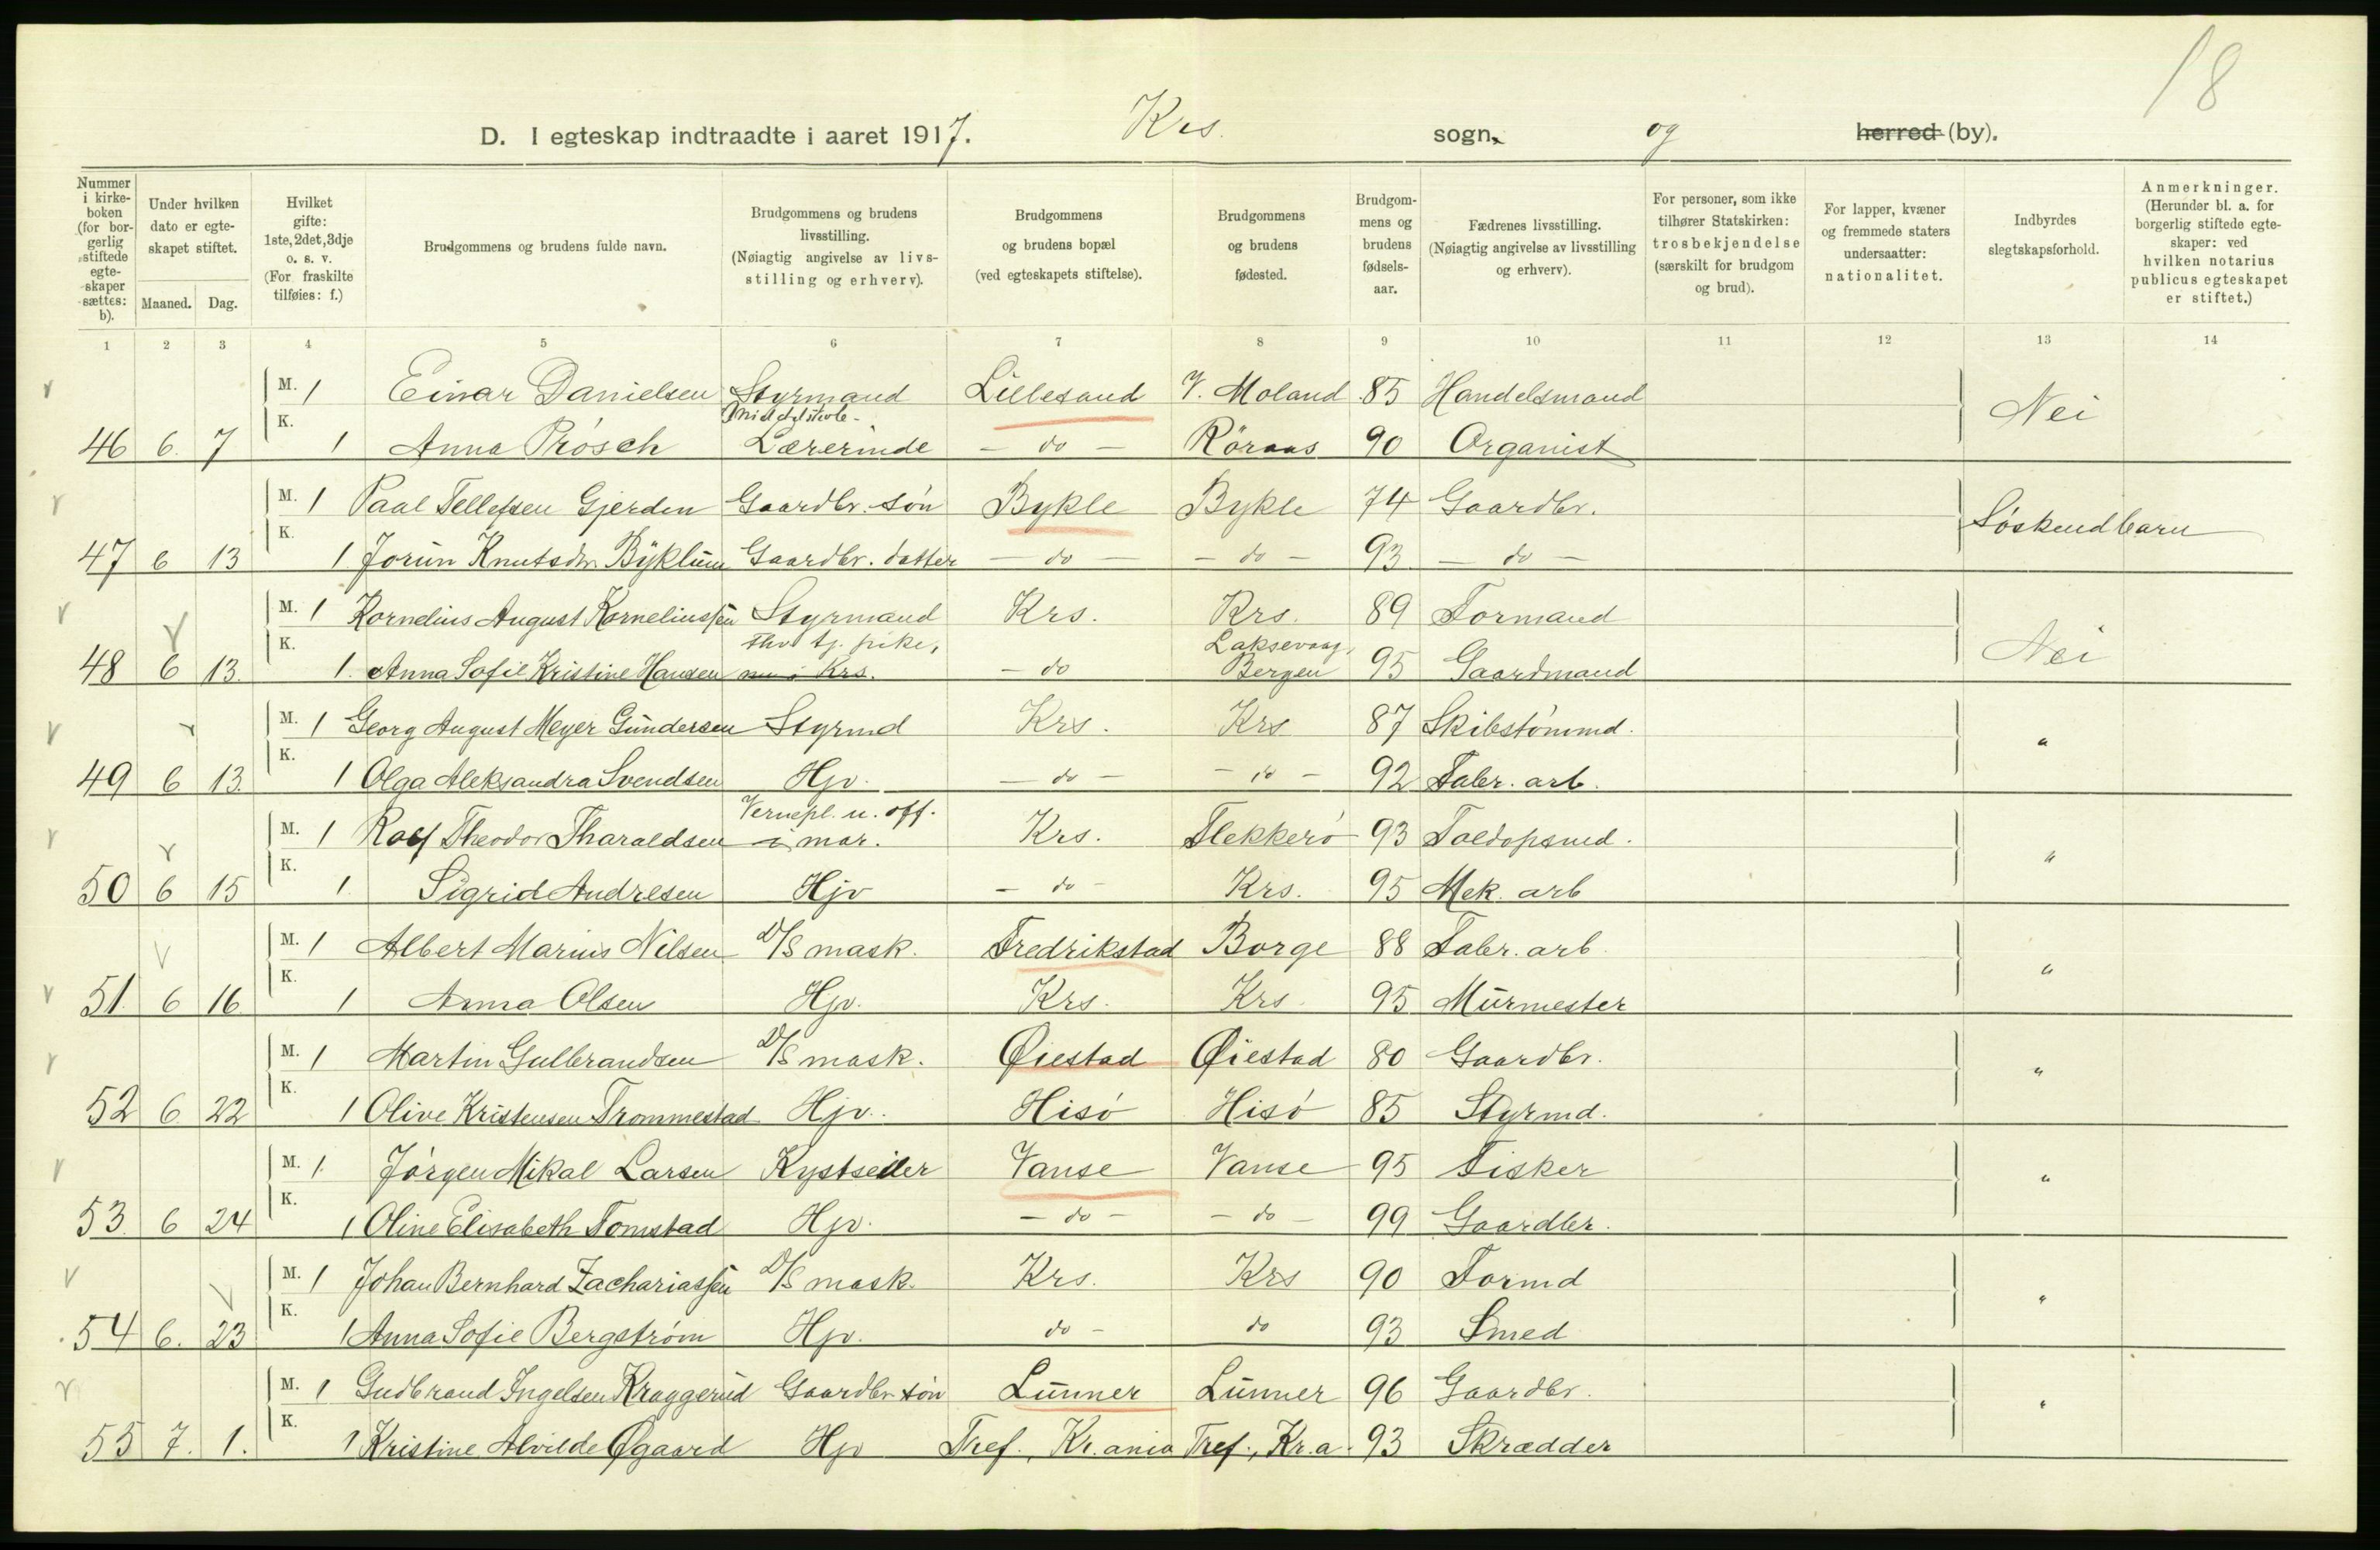 18
D. I egteskap indtraadte i aaret 1917. Krs. sogn, og herred (by).
Nummer i kirkeboken (for borgerlig stiftede egteskaper sættes: b).
Under hvilken dato er egteskapet stiftet.
Maaned. Dag.
Hvilket gifte: 1ste, 2det, 3dje o. s. v. (For fraskilte tilføies: f.)
Brudgommens og brudens fulde navn.
Brudgommens og brudens livsstilling. (Nøiagtig angivelse av livsstilling og erhverv).
Brudgommens og brudens bopæl (ved egteskapets stiftelse).
Brudgommens og brudens fødested.
Brudgommens og brudens fødselsaar.
Fædrenes livsstilling. (Nøiagtig angivelse av livsstilling og erhverv).
For personer, som ikke tilhører Statskirken: trosbekjendelse (særskilt for brudgom og brud).
For lapper, kvæner og fremmede staters undersaatter: nationalitet.
Indbyrdes slegtskapsforhold.
Anmerkninger. (Herunder bl. a. for borgerlig stiftede egteskaper: ved hvilken notarius publicus egteskapet er stiftet.)
1 2 3 4 5 6 7 8 9 10 11 12 13 14
M. 1 Einar Danielsen Styrmand Lillesand V. Moland 85 Handelsmand Nei
Middelskole-
46 6. 7 K. 1 Anna Prösch Lærerinde - do - Röraas 90 Organist
M. 1 Paal Tellefsen Gjerden Gaardbr. søn Bykle Bykle 74 Gaardbr. Søskendbarn
47 6 13 K. 1 Jorun Knutsdtr. Byklum Gaardbr. datter - do - - do - 93 - do -
M. 1 Kornelius August Korneliussen Styrmand Krs. Krs. 89 Formand Nei
tj. pike, Laksevaag,
48 6 13. K. 1. Anna Sofie Kristine Hansen nu i Krs. - do Bergen 95 Gaardmand
M. 1 Georg August Meyer Gundersen Styrmd Krs. Krs 87 Skibstømmd. "
49 6 13. K. 1 Olga Aleksandra Svendsen Hjv. - do - - do - 92 Fabr. arb.
Vernepl. u. off.
M. 1 Rolf Theodor Tharaldsen i mar. Krs. Flekkerö 93 Toldopsmd. "
50 6 15 K. 1. Sigrid Andresen Hjv - do - Krs. 95 Mek. arb
M. 1 Albert Marius Nilsen D/S mask. Fredrikstad Borge 88 Fabr. arb. "
51. 6 16 K. 1 Anna Olsen Hjv. Krs. Krs. 95 Murmester
M. 1 Martin Gulbrandsen D/S mask. Øiestad Øiestad 80 Gaardbr. "
52 6 22 K. 1 Olive Kristensen Trommestad Hjv. Hisö Hisö 85 Styrmd.
M. 1. Jörgen Mikal Larsen Kystseiler Vanse Vanse 95 Fisker "
53. 6 24 K. 1 Oline Elisabeth Tomstad Hjv. - do - - do - 99 Gaardbr.
M. 1 Johan Bernhard Zachariassen D/S mask. Krs. Krs 90 Formd "
54 6. 23 K. 1 Anna Sofie Bergström Hjv. do - do 93 Smed
M. 1 Gudbrand Ingelsen Kraggerud Gaardbr søn Lunner Lunner 96 Gaardbr. "
55 7. 1. K. 1 Kristine Alvilde Øgaard Hjv Tref., Kr.ania Tref., Kr.a. 93 Skrædder